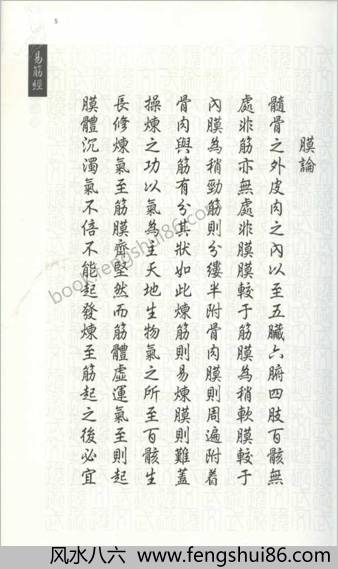 5
易筋經
膜論
髓骨之外皮肉之內以至五臟六腑四肢百骸無
處非筋亦無處非膜膜較于筋膜為稍軟膜較于
內膜為稍勁筋則分縷半附骨肉膜則周遍附着
骨肉與筋有分其狀如此煉筋則易煉膜則難蓋
操煉之功以氣為主天地生物氣之所至百骸生
長修煉氣至筋膜齊堅然而筋體虛運氣至則起
膜體沉濁氣不倍不能起發煉至筋起之後必宜
book.fengshui86.com
风水八六 www.fengshui86.com